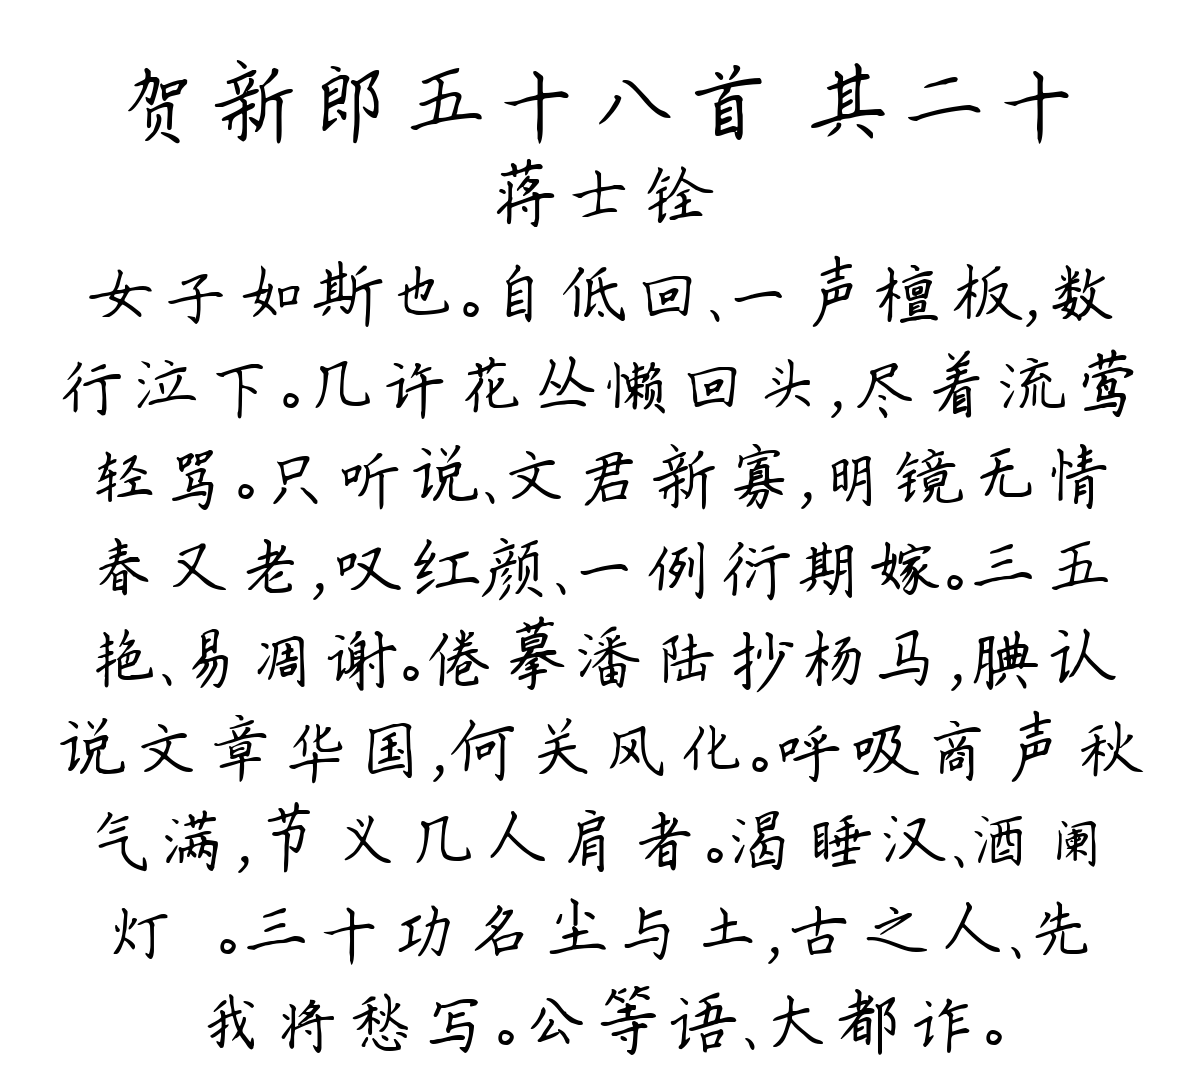 贺新郎五十八首 其二十
蒋士铨
女子如斯也。自低回、一声檀板,数
行泣下。几许花丛懒回头,尽着流莺
轻骂。只听说、文君新寡,明镜无情
春又老,叹红颜、一例衍期嫁。三五
艳、易凋谢。倦摹潘陆抄杨马,腆认
说文章华国,何关风化。呼吸商声秋
气满,节义几人肩者。渴睡汉、酒阑
灯 。三十功名尘与土,古之人、先
我将愁写。公等语、大都诈。